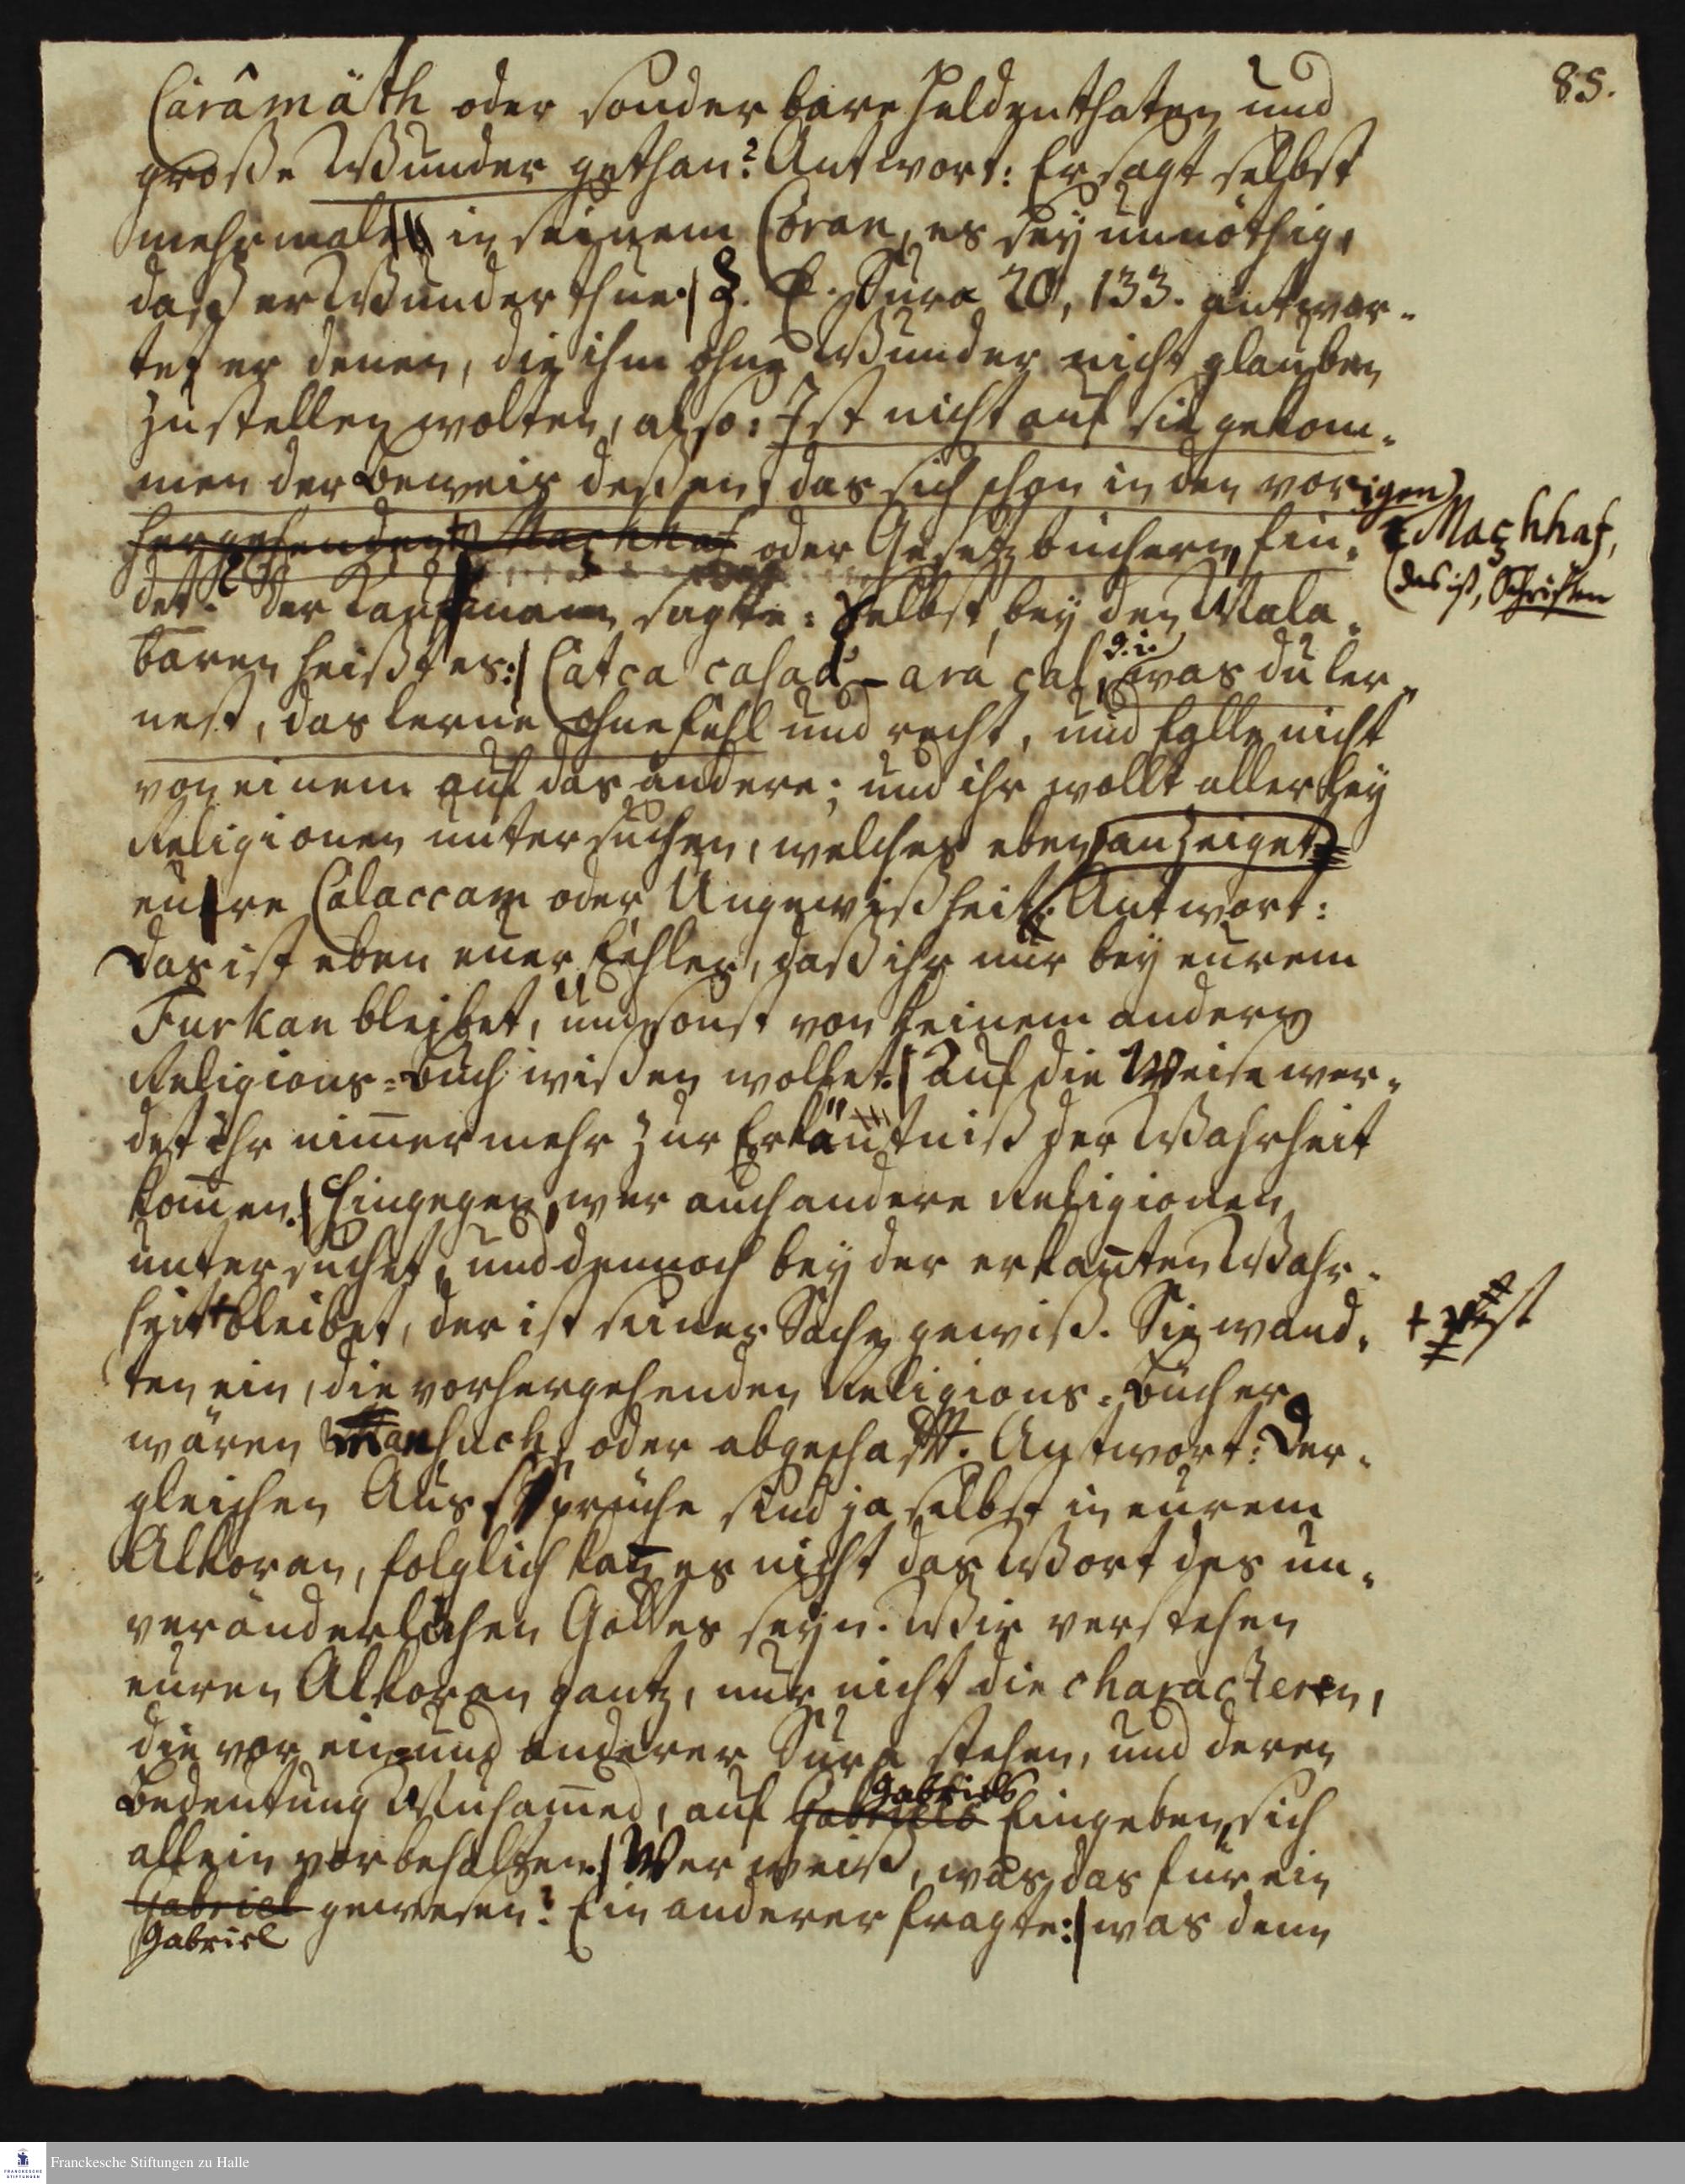 85.
Cârâmäth oder sonderbare Heldenthaten und
große Wunder gethan? Antwort: Er sagt selbst
mehrmals in seinem Coran, es sey unnöthig,
daß er Wunder thue. Z. E. Sura 20, 133. antwor-
tet er denen, die ihm ohne Wunder nicht glauben
zustellen wolten, also: Ist nicht auf sie gekom-
men der Beweis deßen, das sich schon in den vorigen
hergehenden Maçhhaf oder Gesetzbüchern, fin-
Maçhhaf,
(das ist, Schriften
det. Der Kaufmann sagte: Selbst bey den Mala-
baren heißt es: Catca casad-ara cal, d. i. was du ler-
nest, das lerne ohne Fehl und recht, und falle nicht
von einem auf das andere; und ihr wollt allerley
Religionen untersuchen, welches eben anzeiget
eure Calaccam oder Ungewißheit. Antwort:
Das ist eben euer Fehler, daß ihr nur bey eurem
Furkan bleibet, und sonst von keinem andern
Religions-Buch wißen wollet. Auf die Weise wer-
det ihr nim̄ermehr zur Erkäntniß der Wahrheit
kom̄en. Hingegen, wer auch andere Religionen
untersuchet, und dennoch bey der erkan̄ten Wahr-
heit + bleibet, der ist seiner Sache gewiß. Sie wand-
+ vest
ten ein, die vorhergehenden Religions-Bücher
wären Mansuch, oder abgeschafft. Antwort: Der-
gleichen Aussprüche sind ja selbst in eurem
Alkoran, folglich kan es nicht das Wort des un-
veränderlichen Gottes seyn. Wir verstehen
euren Alkoran gantz, nur nicht die characteren,
die vor ein und anderer Sura stehen, und deren
Bedeutung Muham̄ed, auf Gabriels Gabriels Eingeben, sich
allein vorbehalten. Wer weiß, was das für ein
Gabriel gewesen? Ein anderer fragte: was denn
Gabriel
Franckesche Stiftungen zu Halle